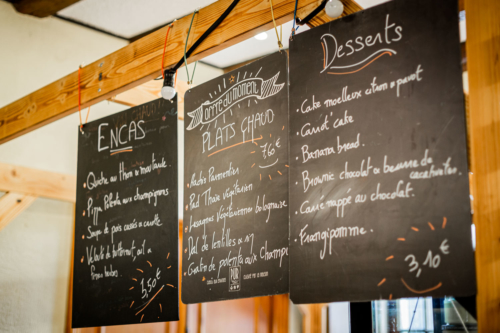 ENCAS
Quiche au thon & moutarde
Pizza Polenta aux champignons
Soupe de pois cassés
Velouté de butternut, ail
3,50€
OFFRE DU MOMENT
PLATS CHAUD
7€
Parmentier
Pad Thaï Végétarien
Lasagnes Végétarienne bolognaise
Dal de lentilles & riz
Gratin de polenta aux Champi
PUR
Desserts
Cake moelleux citron & pavot
Carrot' cake
Banana bread.
Brownie chocolat & beurre de cacahuètes.
Cake nappé au chocolat.
Frangipomme.
3,10€